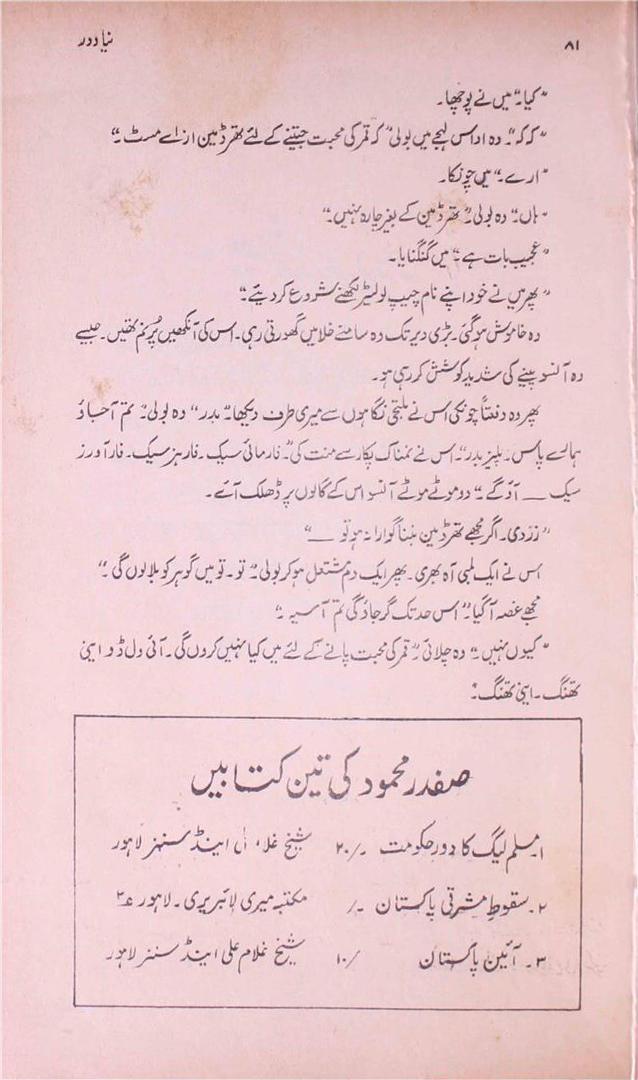 ۸۱ نیا دور
"کیا۔" میں نے پوچھا۔
"کہ کہ"۔ وہ اداس لہجے میں بولی" کہ قمر کی محبت جیتنے کے لئے تھرڈ مین از اے مسٹ۔"
"ارے۔" میں چونکا۔
"ہاں۔" وہ بولی۔" تھرڈ مین کے بغیر چارہ نہیں۔"
"عجیب بات ہے۔" میں گنگنایا۔
"پھر میں نے خود اپنے نام چیپ لو لیٹر لکھنے شروع کر دیئے۔"
وہ خاموش ہو گئی۔ بڑی دیر تک وہ سامنے خلا میں گھورتی رہی۔ اس کی آنکھیں پُرنم تھیں۔ جیسے
وہ آنسو پینے کی شدید کوشش کر رہی ہو۔
پھر وہ دفعتاً چونکی اس نے ملتجی نگاہوں سے میری طرف دیکھا۔" بدر" وہ بولی۔" تم آ جاؤ
ہمارے پاس۔ پلیز بدر"۔ اس نے نمناک پکار سے منت کی۔" فار مائی سیک۔ فار ہز سیک۔ فار آورز
سیک ـــ آؤ گے۔" دو موٹے موٹے آنسو اس کے گالوں پر ڈھلک آئے۔
"زردی۔ اگر مجھے تھرڈ مین بننا گوارا نہ ہو تو ـــ"
اس نے ایک لمبی آہ بھری۔ پھر ایک دم مشتعل ہو کر بولی۔" تو۔ تو میں گوہر کو بلا لوں گی۔"
مجھے غصہ آ گیا۔" اس حد تک گر جاؤ گی تم آسیہ۔"
"کیوں نہیں۔" وہ چلائی۔" قمر کی محبت پانے کے لئے میں کیا نہیں کروں گی۔ آئی ول ڈو اینی
تھنگ۔ اینی تھنگ۔"
صفدر محمود کی تین کتابیں
۱۔ مسلم لیگ کا دورِ حکومت ۲۰/۔ شیخ غلا علی اینڈ سنز لاہور
۲۔ سقوطِ مشرقی پاکستان /۔ مکتبہ میری لائبریری۔ لاہور ۲
۳۔ آئین پاکستان ۱۰/ شیخ غلام علی اینڈ سنز لاہور